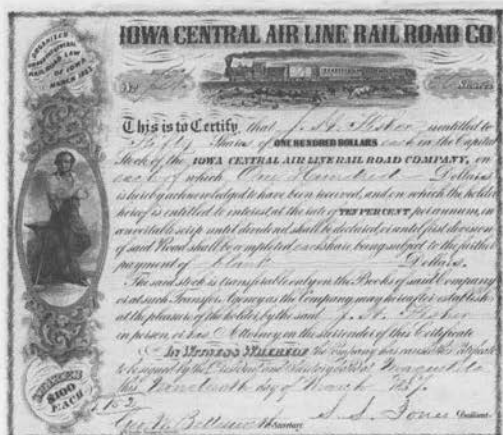 ORGANIZED
UNDER GENERAL
RAIL ROAD LAW
OF IOWA
MARCH 1853
IOWA CENTRAL AIR LINE RAIL ROAD CO
No
Shares
This is to Certify, that J. H. Fisher is entitled to
Fifty Shares of ONE HUNDRED DOLLARS each in the Capital
Stock of the IOWA CENTRAL AIR LINE RAIL ROAD COMPANY, on
each of which One Hundred Dollars
is hereby acknowledged to have been received, and on which the holder
hereof is entitled to interest at the rate of TEN PER CENT per annum, in
convertible scrip until dividend shall be declared, or until first division
of said Road shall be completed each share being subject to the further
payment of blank Dollars.
The said stock is transferable only on the Books of said Company
or at such Transfer Agency as the Company may hereafter establish
at the pleasure of the holder by the said J. H. Fisher
in person or his Attorney on the surrender of this Certificate
In Witness Whereof the Company has caused this Certificate
to be signed by the President and Secretary dated at Maquoketa
this day of March 185
$100
EACH
Secretary
S. S. Jones President